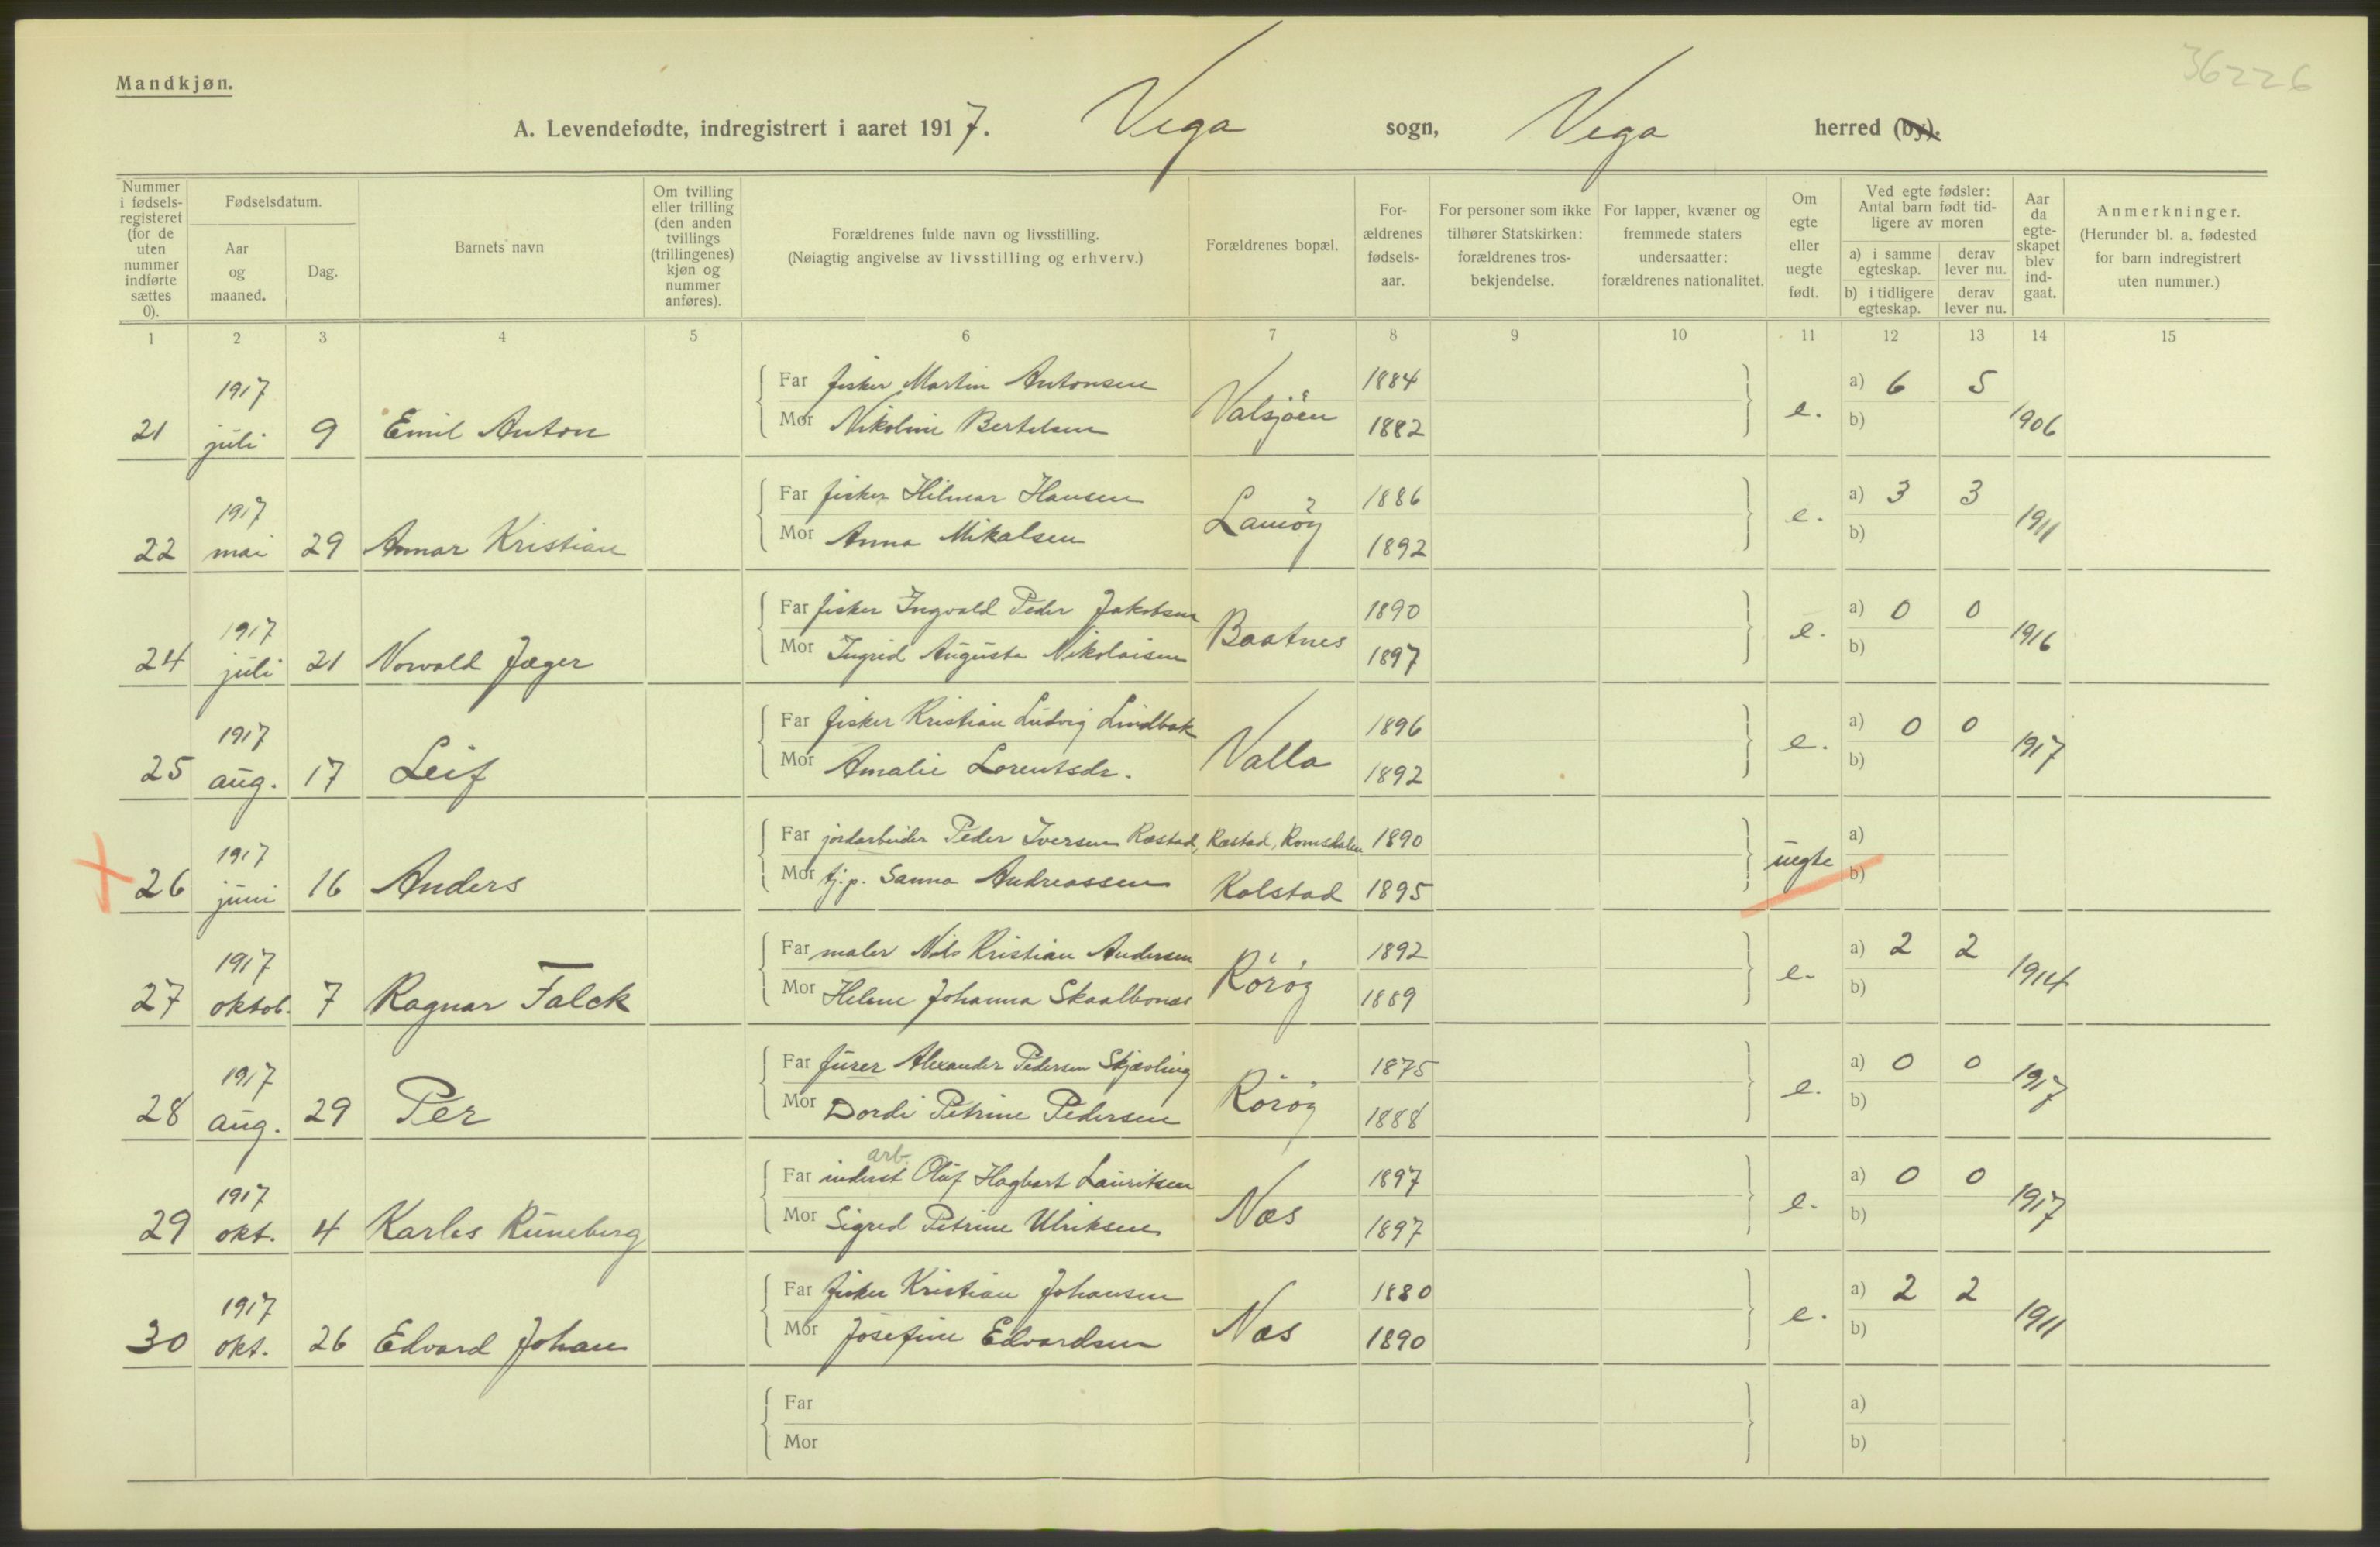 36226
Mandkjøn.
A. Levendefødte, indregistrert i aaret 1917. Vega sogn, Vega herred (by).
Nummer i fødsels-registeret (for de uten nummer indførte sættes 0).
Fødselsdatum.
Aar og maaned.
Dag.
Barnets navn
Om tvilling eller trilling (den anden tvillings (trillingenes) kjøn og nummer anføres).
Forældrenes fulde navn og livsstilling.
(Nøiagtig angivelse av livsstilling og erhverv.)
Forældrenes bopæl.
For-ældrenes fødsels-aar.
For personer som ikke tilhører Statskirken: forældrenes tros-bekjendelse.
For lapper, kvæner og fremmede staters undersaatter: forældrenes nationalitet.
Om egte eller uegte født.
Ved egte fødsler: Antal barn født tid-ligere av moren
a) i samme egteskap. derav lever nu.
b) i tidligere egteskap. derav lever nu.
Aar da egte-skapet blev ind-gaat.
Anmerkninger.
(Herunder bl. a. fødested for barn indregistrert uten nummer.)
1 2 3 4 5 6 7 8 9 10 11 12 13 14 15
1917 Far fisker Martin Antonsen 1884 a) 6 5
21 juli 9 Emil Anton Mor Nikoline Bertelsen Valsjøen 1882 e. b) 1906
1917 Far fisker Hilmar Hansen 1886 a) 3 3
22 mai 29 Annar Kristian Mor Anna Mikalsen 1892 e. b) 1911
1917 Far fisker Ingvald Peder Jakobsen 1890 a) 0 0
24 juli 21 Norvald Jæger Mor Ingrid Augusta Nikolaisen Baatnes 1897 e. b) 1916
1917 Far fisker Kristian Ludvig Lindbak 1896 a) 0 0
25 aug. 17 Leif Mor Amalie Lorentsdr. Valla 1892 e. b) 1917
1917 Far jordarbeider Peder Iversen Ræstad, Ræstad, Romsdalen 1890 a)
26 juni 16 Anders Mor tj.p. Sanna Andreassen Kolstad 1895 uegte b)
1917 Far maler Nils Kristian Andersen 1892 a) 2 2
27 oktob. 7 Ragnar Falck Mor Helene Johanna Skaalbones Rørøy 1889 e. b) 1914
1917 Far furer Alexander Pedersen Skjævling 1875 a) 0 0
28 aug. 29 Per Mor Dordi Petrine Pedersen Rørøy 1888 e. b) 1917
arb.
1917 Far inderst Oluf Hagbart Lauritsen 1897 a) 0 0
29 okt. 4 Karles Runeberg Mor Sigrid Petrine Ulriksen Næs 1897 e. b) 1917
1917 Far fisker Kristian Johansen 1880 a) 2 2
30 okt. 26 Edvard Johan Mor Josefine Edvardsen Næs 1890 e. b) 1911
Far a)
Mor b)